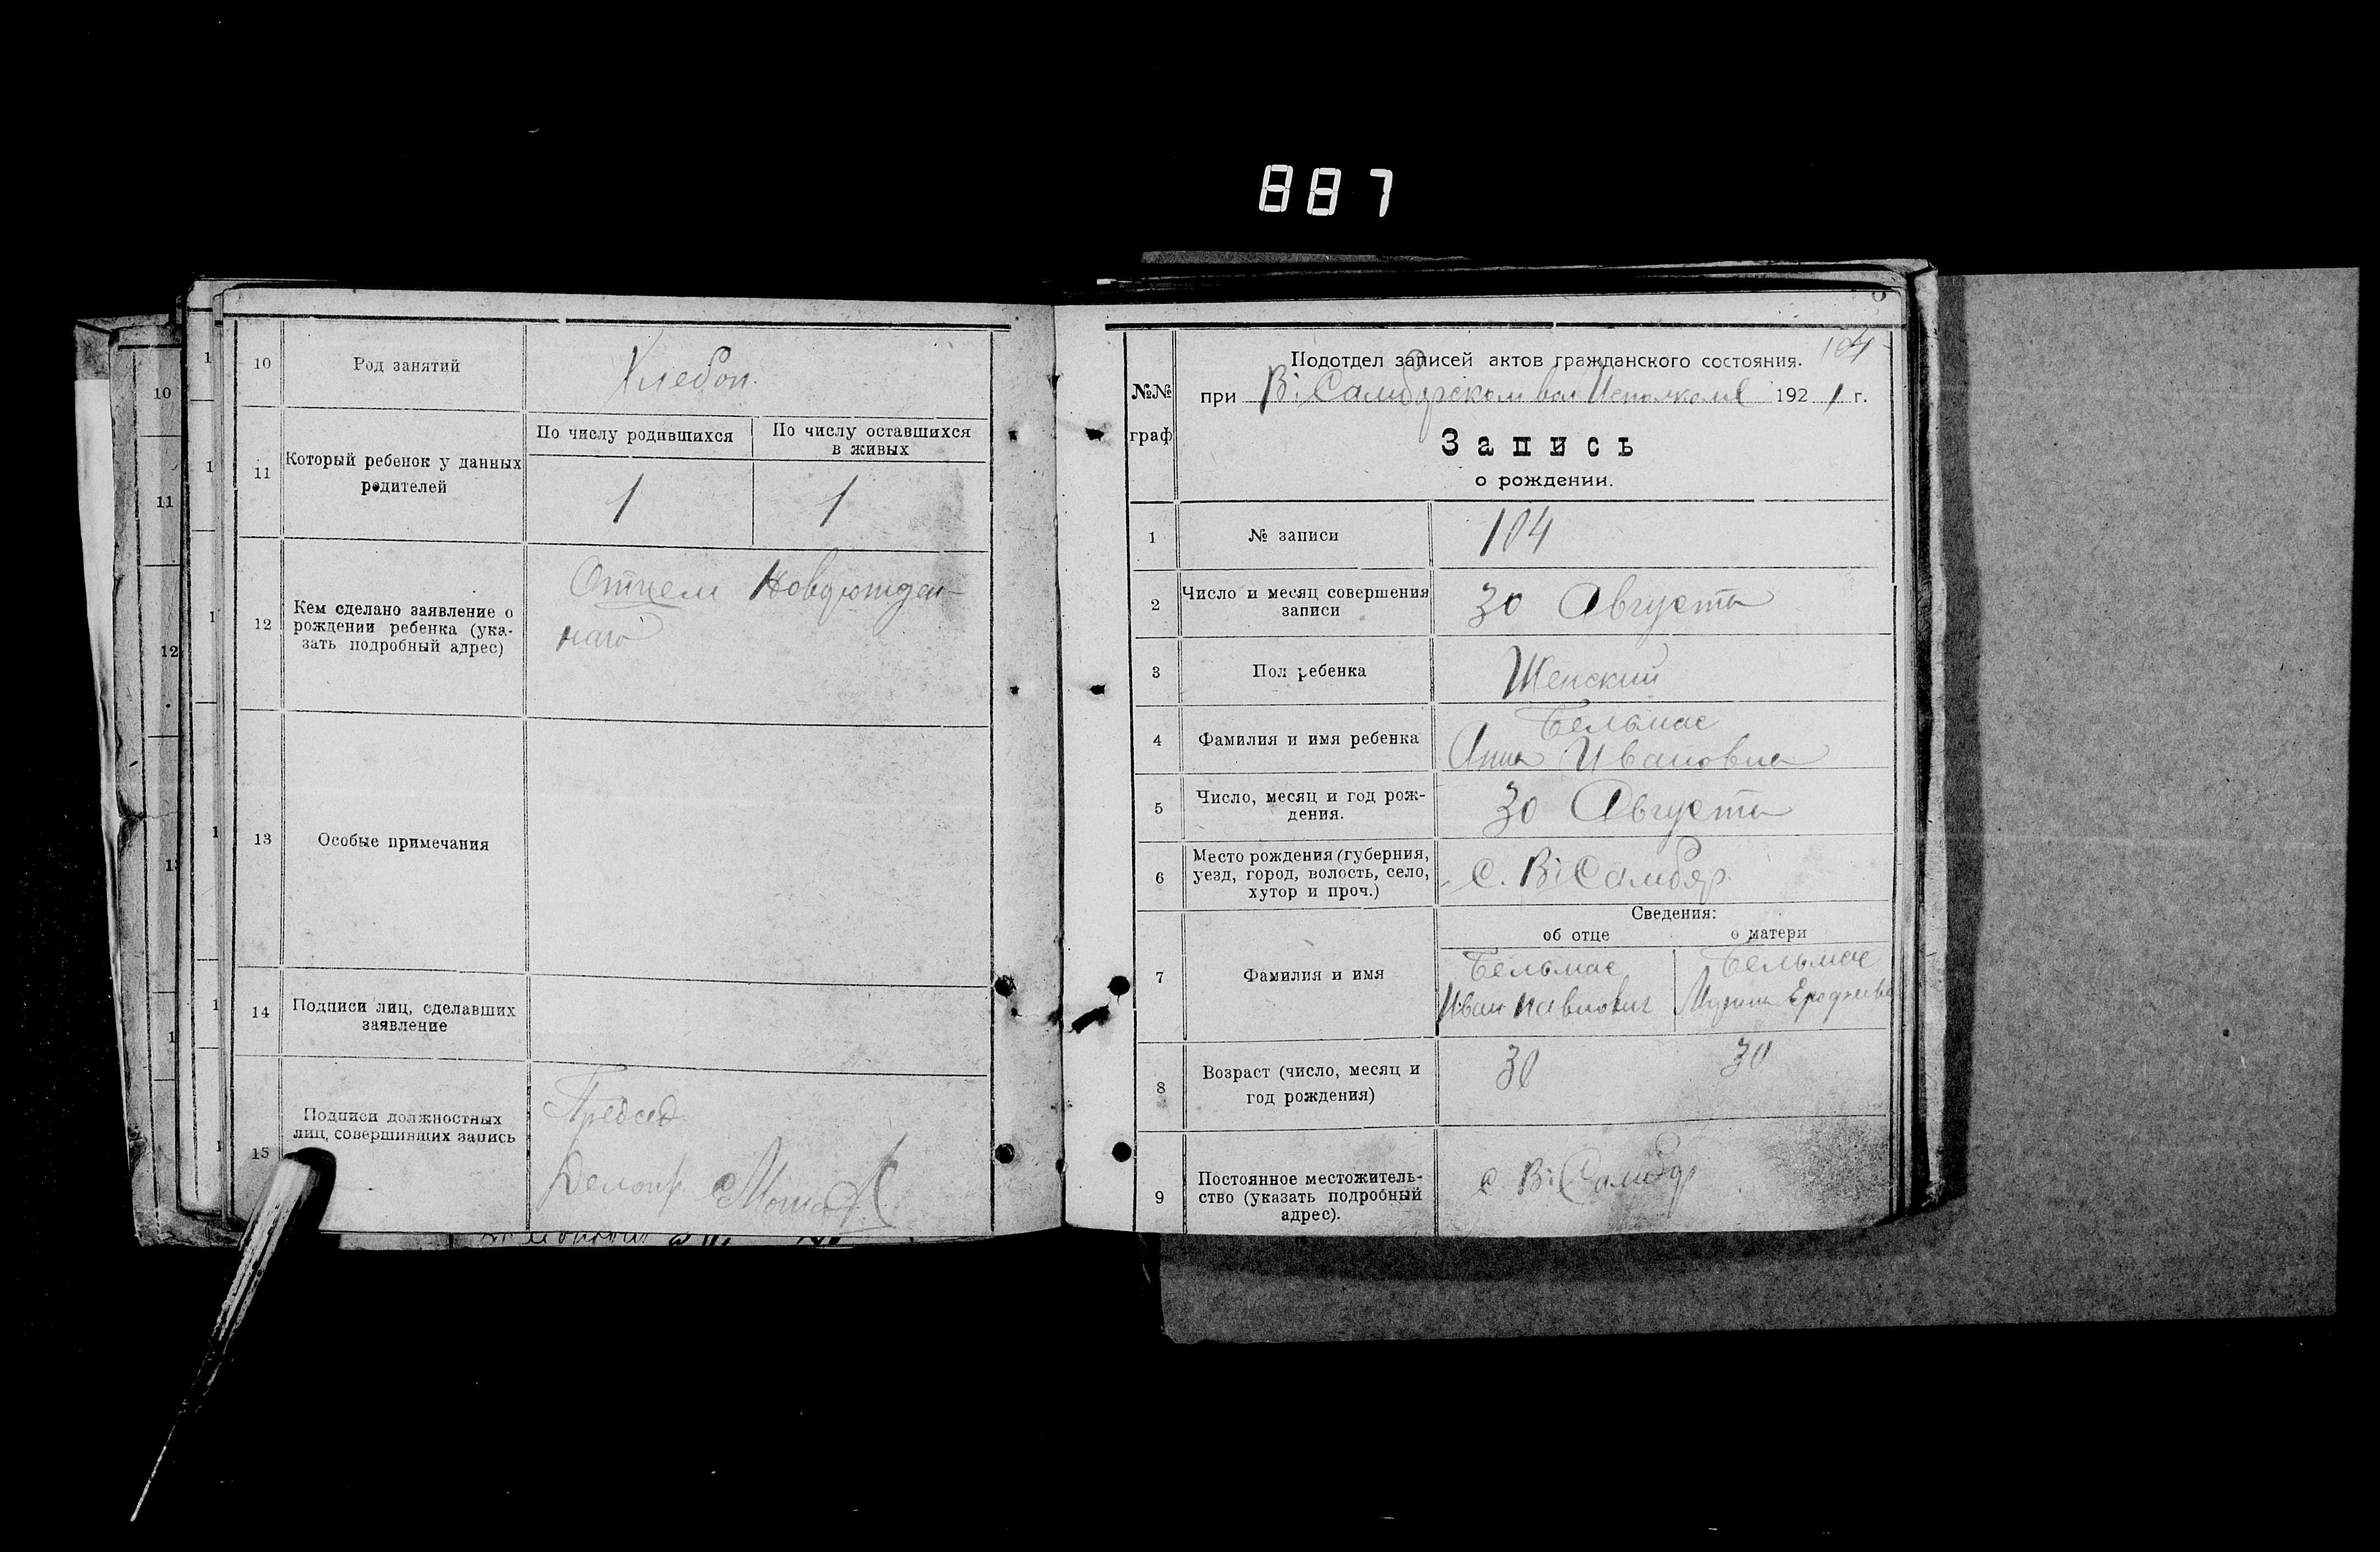 887
10
Род занятий
Хлебоп.
11
Который ребенок у данных
родителей
По числу родившихся
По числу оставшихся
в живых
1
1
12
Кем сделано заявление о
рождении ребенка (ука-
зать подробный адрес)
Отцем Новорожден-
наго
13
Особые примечания
14
Подписи лиц, сделавших
заявление
15
Подписи должностных
лиц, совершивших запись
Председ
Делопр.
104
№№
граф
Подотдел записей актов гражданского состояния.
при В. Самбурском вол Исполкоме 1921 г.
Запись
о рождении.
1
№ записи
104
2
Число и месяц совершения
записи
30 Августа
3
Пол ребенка
Женский
4
Фамилия и имя ребенка
Бельмас
Анна Ивановна
5
Число, месяц и год рож-
дения.
30 Августа
6
Место рождения (губерния,
уезд, город, волость, село,
хутор и проч.)
с. В. Самбур.
Сведения:
об отце
о матери
7
Фамилия и имя
Бельмас
Иван Павлович
Бельмас
8
Возраст (число, месяц и
год рождения)
30
30
9
Постоянное местожитель-
ство (указать подробный
адрес).
с. В. Самбур